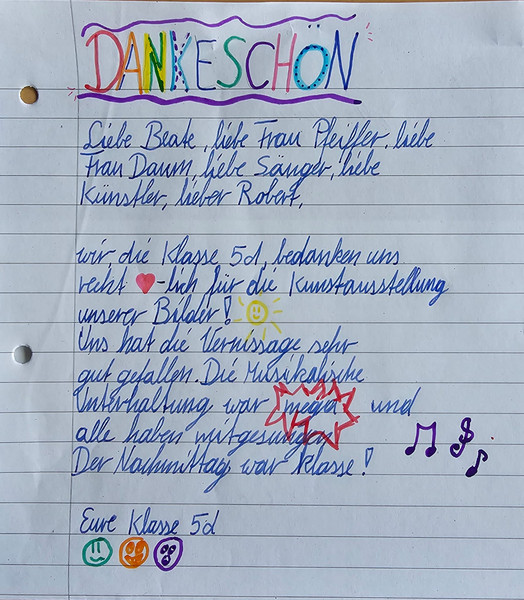 DANKESCHÖN
Liebe Beate, liebe Frau Pfeiffer, liebe
Frau Daum, liebe Sänger, liebe
Künstler, lieber Robert,
wir die Klasse 5d, bedanken uns
recht ♥-lich für die Kunstausstellung
unserer Bilder!
Uns hat die Vernissage sehr
gut gefallen. Die Musikalische
Unterhaltung war mega und
alle haben mitgesungen
Der Nachmittag war klasse!
Eure Klasse 5d